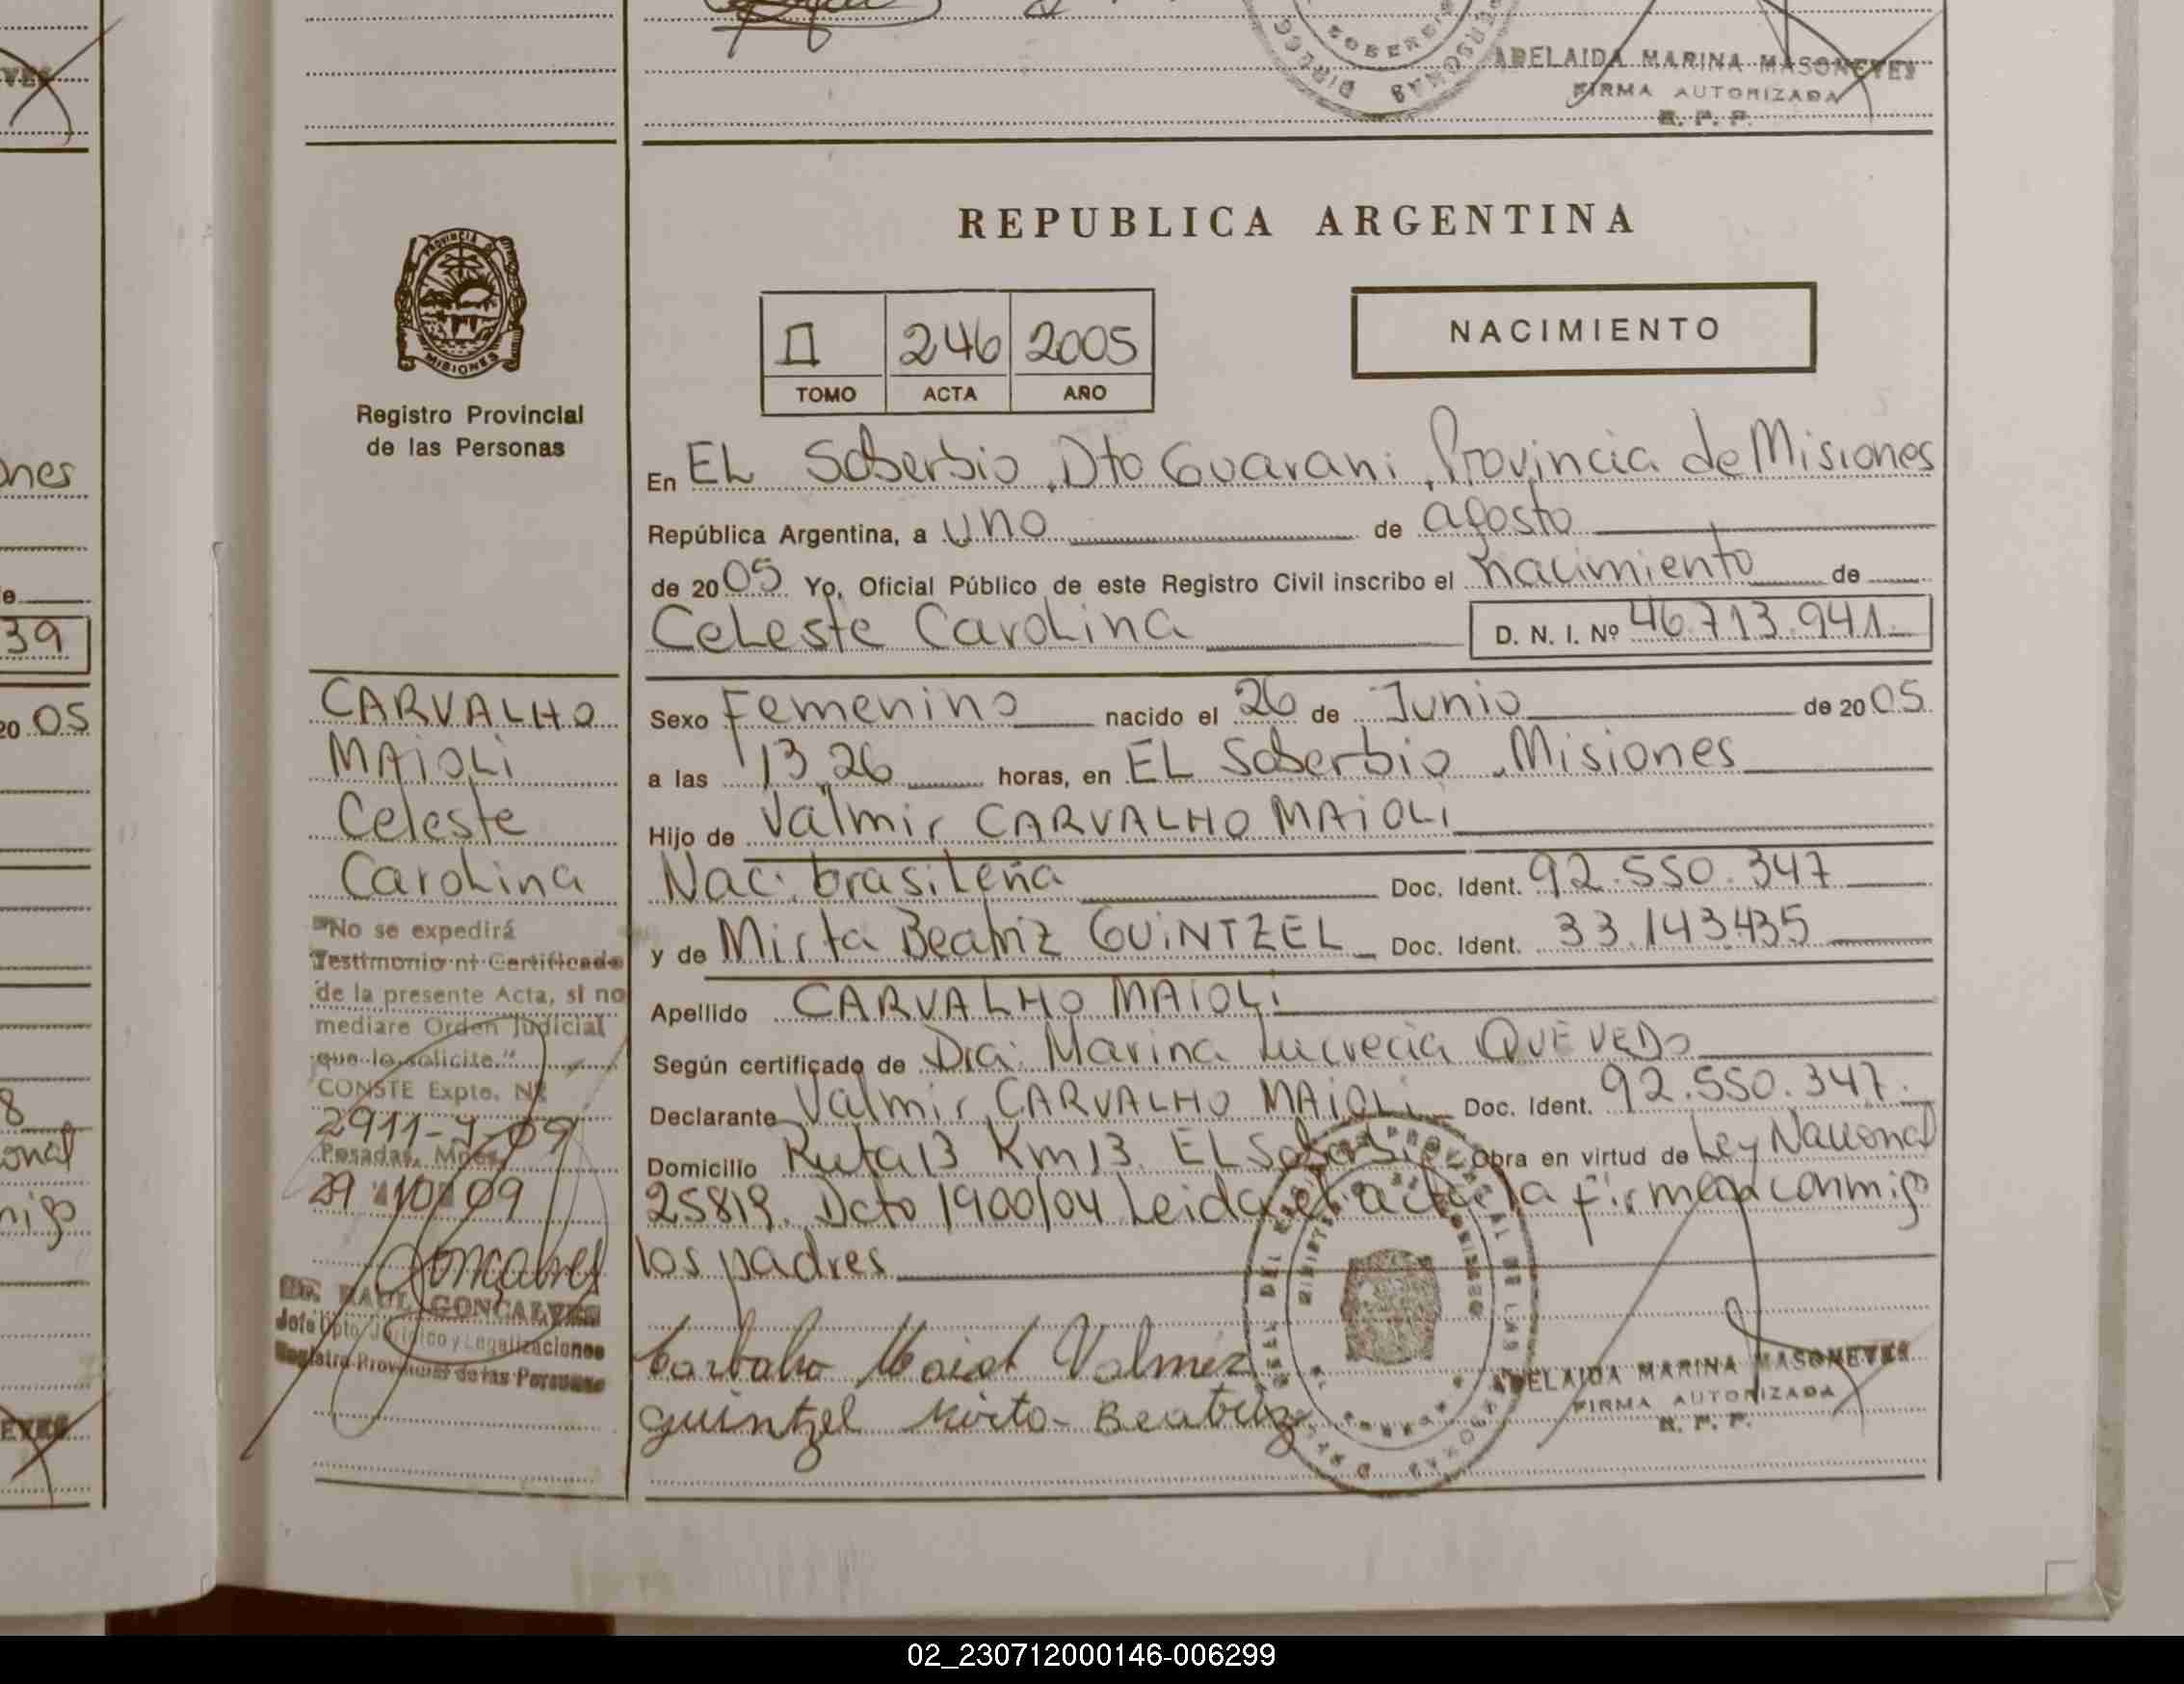 SOBER
DIREC
PERSONAS
ADELAIDA MARINA MASONEVES
FIRMA AUTORIZADA
R. P. P.
REPUBLICA ARGENTINA
PROVINCIA DE
MISIONES
Registro Provincial
de las Personas
II 246 2005
TOMO ACTA AÑO
NACIMIENTO
En EL Soberbio, Dto Guarani, Provincia de Misiones
República Argentina, a uno de agosto
de 2005 Yo, Oficial Público de este Registro Civil inscribo el nacimiento de
Celeste Carolina D. N. I. Nº 46.713.941
Sexo Femenino nacido el 26 de Junio de 2005
a las 13,26 horas, en EL Soberbio, Misiones
Hijo de Valmir CARVALHO MAiOLi
Nac: brasileña Doc. Ident. 92.550.347
y de Mirta Beatriz GUiNTZEL Doc. Ident. 33.143435
Apellido CARVALHO MAIOLi
Según certificado de Dra: Marina Lucrecia QUEVEDO
Declarante Valmir CARVALHO MAiOLi Doc. Ident. 92.550.347.
Domicilio Ruta 13 Km 13. EL Soberbio Obra en virtud de Ley Nacional
25819. Dcto 1900/04 Leida el acta la firman conmigo
los padres
Carbalo Maioli Valmir
guintzel Mirta Beatriz
ADELAIDA MARINA MASONEVES
FIRMA AUTORIZADA
R. P. P.
CARVALHO
MAiOLi
Celeste
Carolina
"No se expedirá
Testimonio ni Certificado
de la presente Acta, si no
mediare Orden Judicial
que lo solicite."
CONSTE Expte. Nº
2911-
09
Posadas, Mnes,
29 10 09
Dr. RAUL GONÇALVES
Jefe Dpto Jurídico y Legalizaciones
Registro Provincial de las Personas
ones
39
20 05
8
onal
migo
02_230712000146-006299